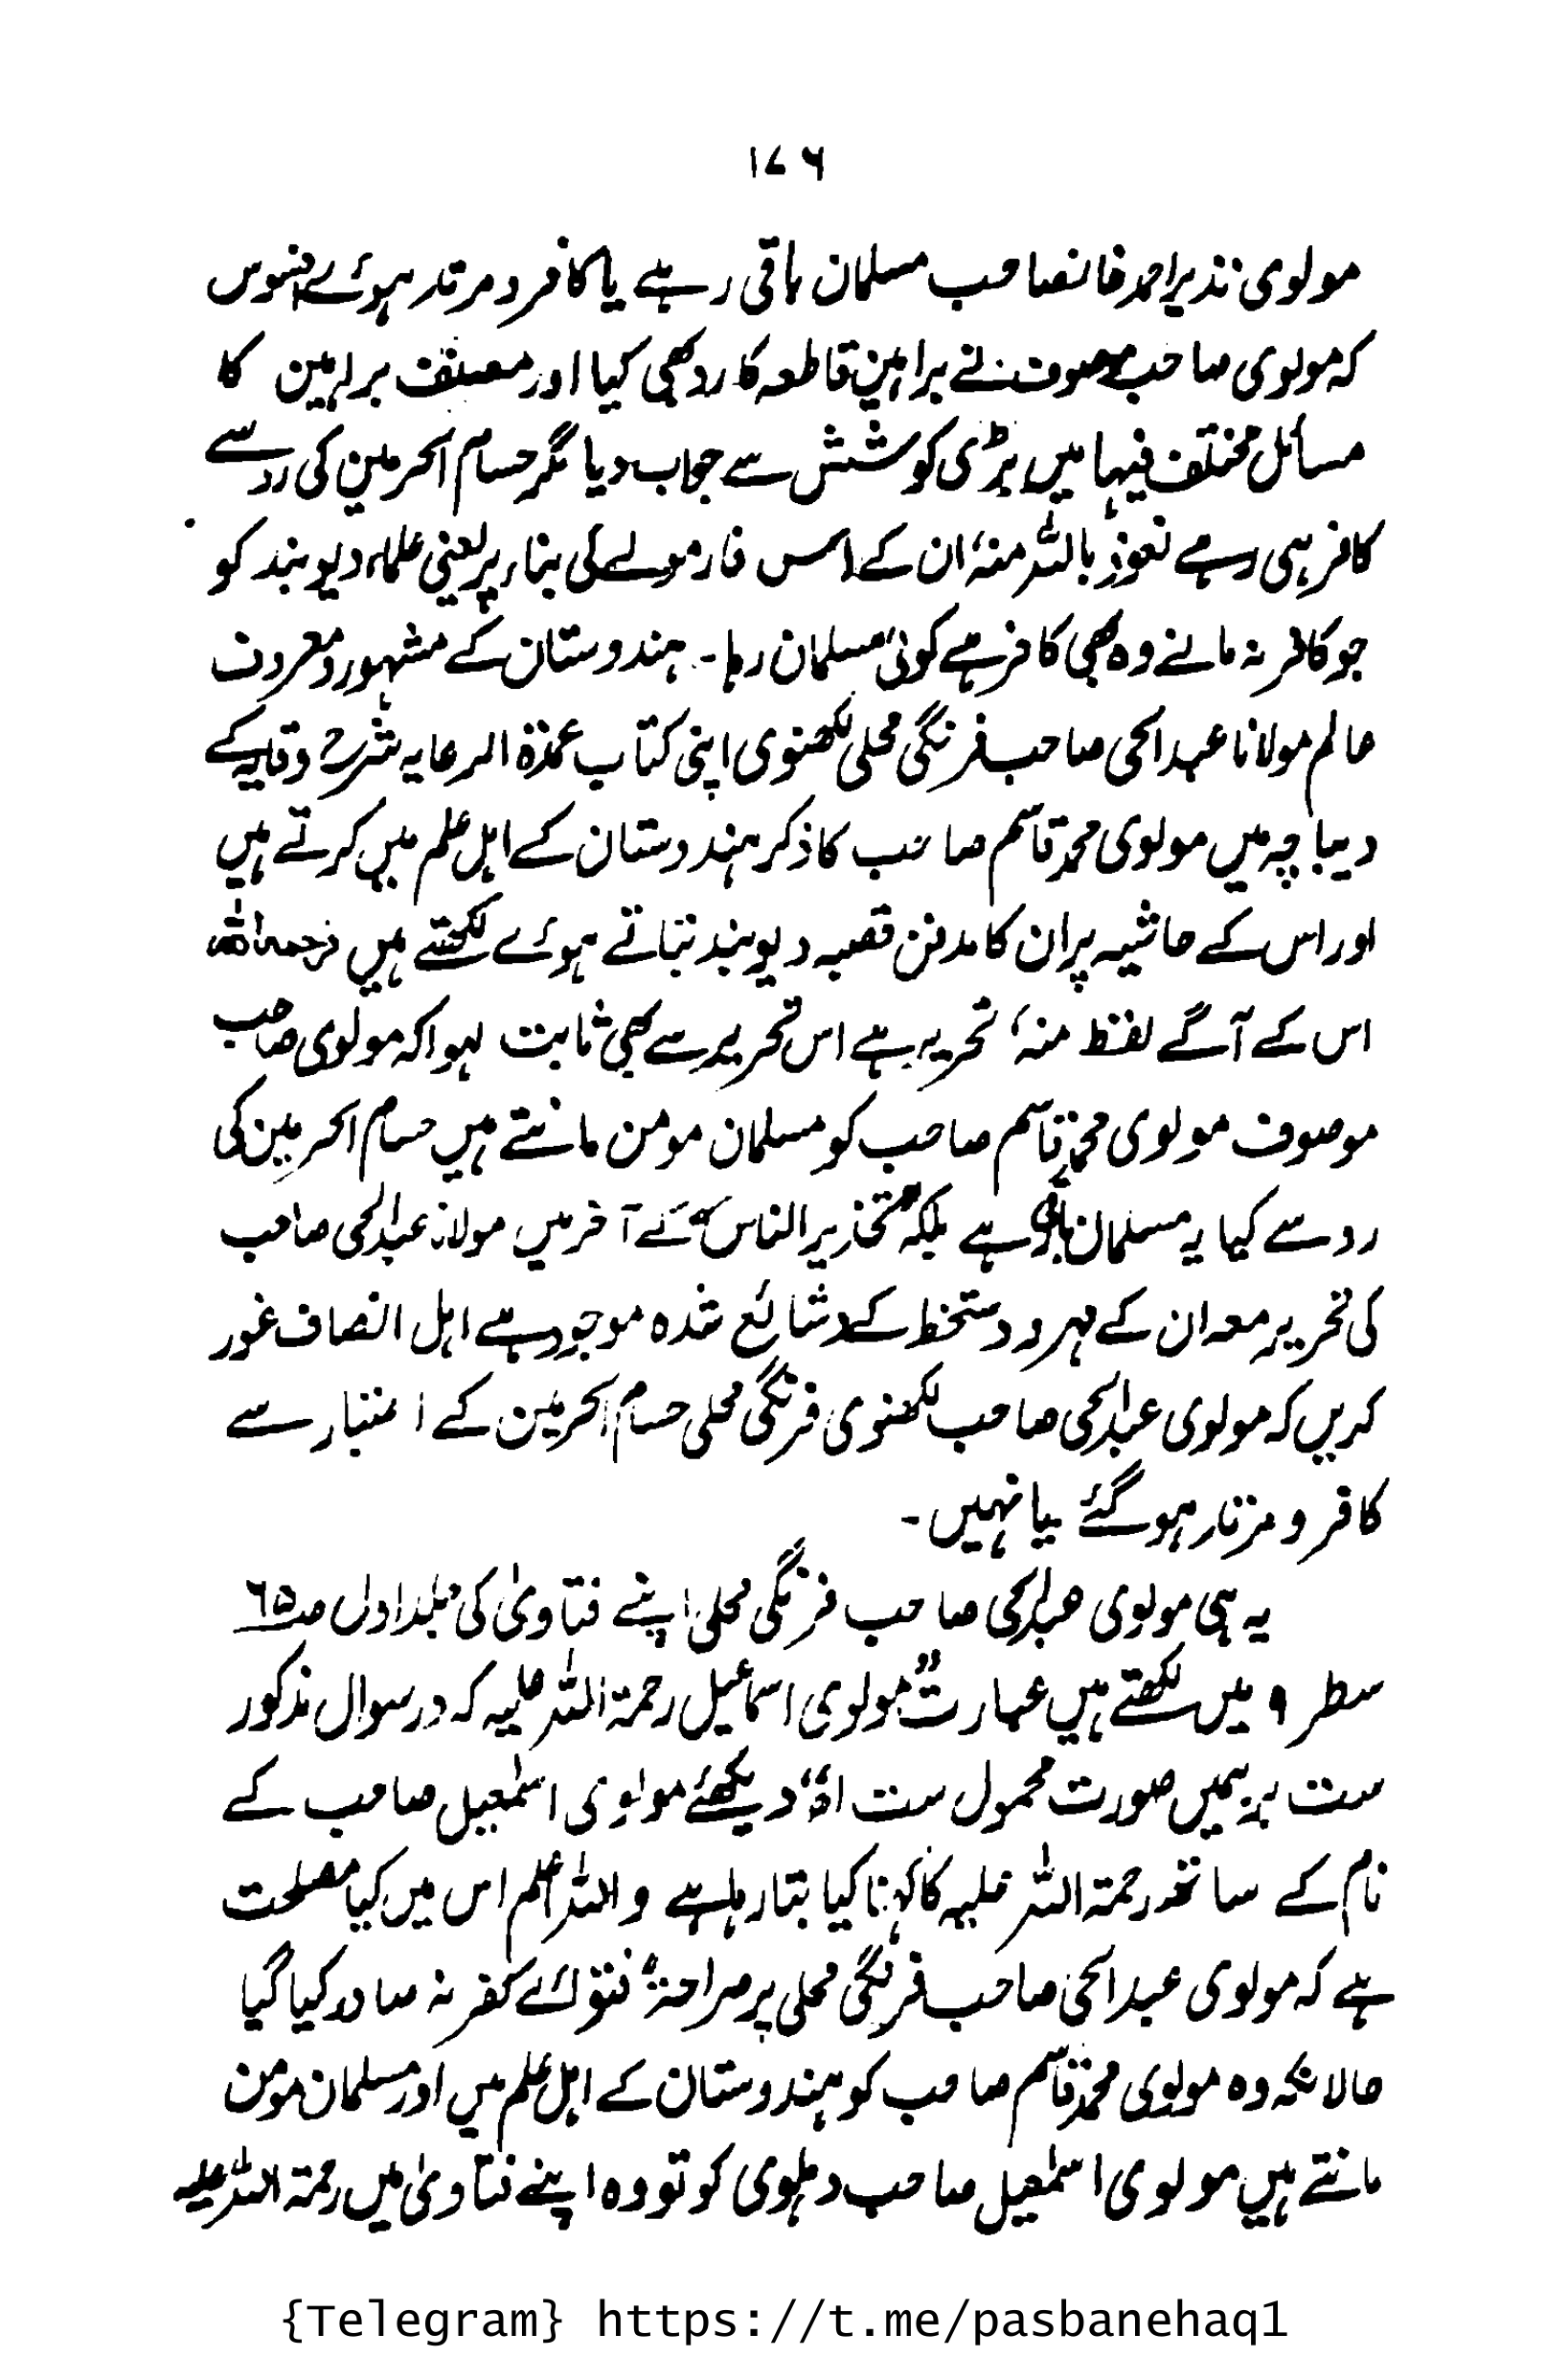 ۱۷۶
مولوی نذیر احمد خانصاحب مسلمان باقی رہے یا کافر و مرتد ہوئے افسوس
کہ مولوی صاحب موصوف نے براہین قاطعہ کا رد بھی کیا اور مصنف براہین کا
مسائل مختلف فیہا میں بڑی کوشش سے جواب دیا مگر حسام الحرمین کی رو سے
کافر ہی رہے نعوذ باللہ منہ، ان کے اس فارمولے کی بناء پر یعنی علماء دیوبند کو
جو کافر نہ مانے وہ بھی کافر ہے کوئی مسلمان رہا۔ ہندوستان کے مشہور و معروف
عالم مولانا عبدالحی صاحب فرنگی محلی لکھنوی اپنی کتاب عمدۃ الرعایہ شرح وقایہ کے
دیباچہ میں مولوی محمد قاسم صاحب کا ذکر ہندوستان کے اہل علم میں کرتے ہیں
اور اس کے حاشیہ پر ان کا مدفن قصبہ دیوبند بتاتے ہوئے لکھتے ہیں رحمہ اللہ
اس کے آگے لفظ منہ، تحریر ہے اس تحریر سے بھی ثابت ہوا کہ مولوی صاحب
موصوف مولوی محمد قاسم صاحب کو مسلمان مومن مانتے ہیں حسام الحرمین کی
رو سے کیا یہ مسلمان باقی ہے بلکہ "تحذیر الناس" کے آخر میں مولانا عبدالحی صاحب
کی تحریر معہ ان کے مہر و دستخط کے شائع شدہ موجود ہے اہل انصاف غور
کریں کہ مولوی عبدالحی صاحب لکھنوی فرنگی محلی حسام الحرمین کے اعتبار سے
کافر و مرتد ہو گئے یا نہیں۔
یہ ہی مولوی عبدالحی صاحب فرنگی محلی اپنے فتاویٰ کی جلد اول صہ ۶۵
سطر ۹ میں لکھتے ہیں عبارت "مولوی اسماعیل رحمۃ اللہ علیہ کہ در سوال مذکور
ست بر ہمیں صورت محمول ست اھ" دیکھئے مولوی اسمٰعیل صاحب کے
نام کے ساتھ رحمۃ اللہ علیہ کا کہنا کیا بتا رہا ہے واللہ اعلم اس میں کیا مصلحت
ہے کہ مولوی عبدالحی صاحب فرنگی محلی پر صراحۃً فتوائے کفر نہ صادر کیا گیا
حالانکہ وہ مولوی محمد قاسم صاحب کو ہندوستان کے اہل علم میں اور مسلمان مومن
مانتے ہیں مولوی اسمٰعیل صاحب دہلوی کو تو وہ اپنے فتاویٰ میں رحمۃ اللہ علیہ
{Telegram} https://t.me/pasbanehaq1